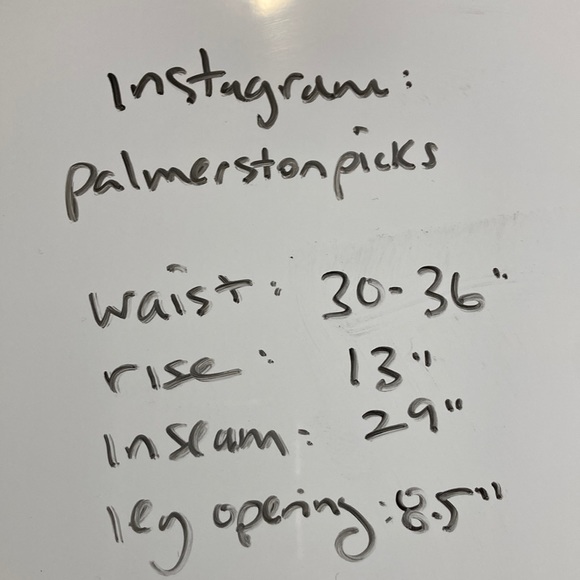 Instagram:
palmerstonpicks
waist: 30-36"
rise: 13"
Inseam: 29"
leg opening: 8.5"